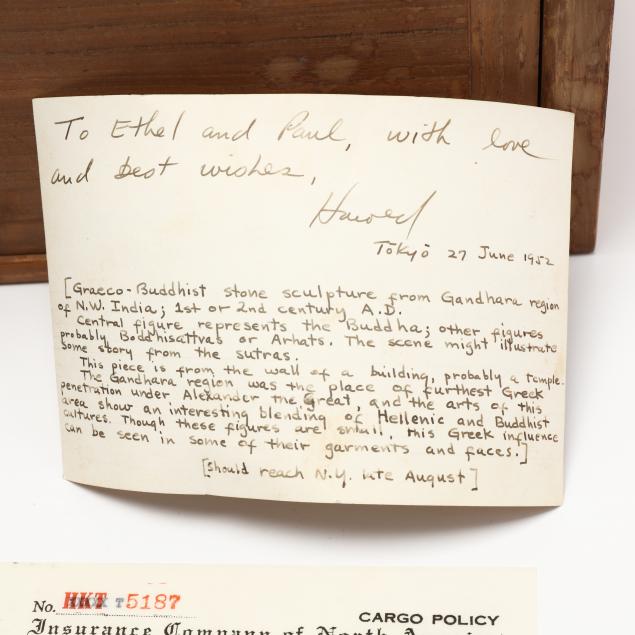 To Ethel and Paul, with love
and best wishes,
Harold
Tōkyō 27 June 1952
[Graeco-Buddhist stone sculpture from Gandhara region
of N.W. India; 1st or 2nd century A.D.
Central figure represents the Buddha; other figures
probably Boddhisattvas or Arhats. The scene might illustrate
some story from the sutras.
This piece is from the wall of a building, probably a temple.
The Gandhara region was the place of furthest Greek
penetration under Alexander the Great, and the arts of this
area show an interesting blending of Hellenic and Buddhist
cultures. Though these figures are small, this Greek influence
can be seen in some of their garments and faces.]
[should reach N.Y. late August]
No. HKT T5187
CARGO POLICY
Insurance Company of North